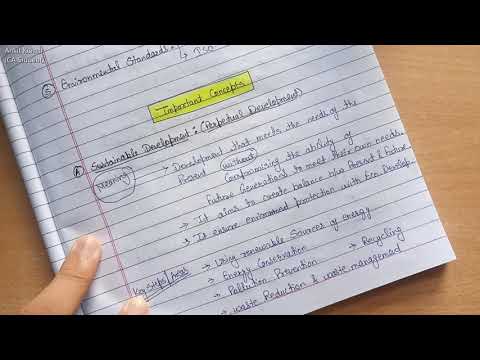 Ankit Kumar
(CA Student)
⑤ Environmental Standards
↳ ISO
Important Concepts
Ⓐ Sustainable Development : (Perpetual Development)
Meaning
→ Development that meets the needs of the
Present without Compromising the ability of
future Generations to meet their own needs.
→ It aims to create balance b/w Present & future
→ It ensure environment protection with Eco. Develop.
Key steps/Areas
→ Using renewable Sources of energy
→ Energy Conservation → Recycling
→ Pollution Prevention
→ waste Reduction & waste management